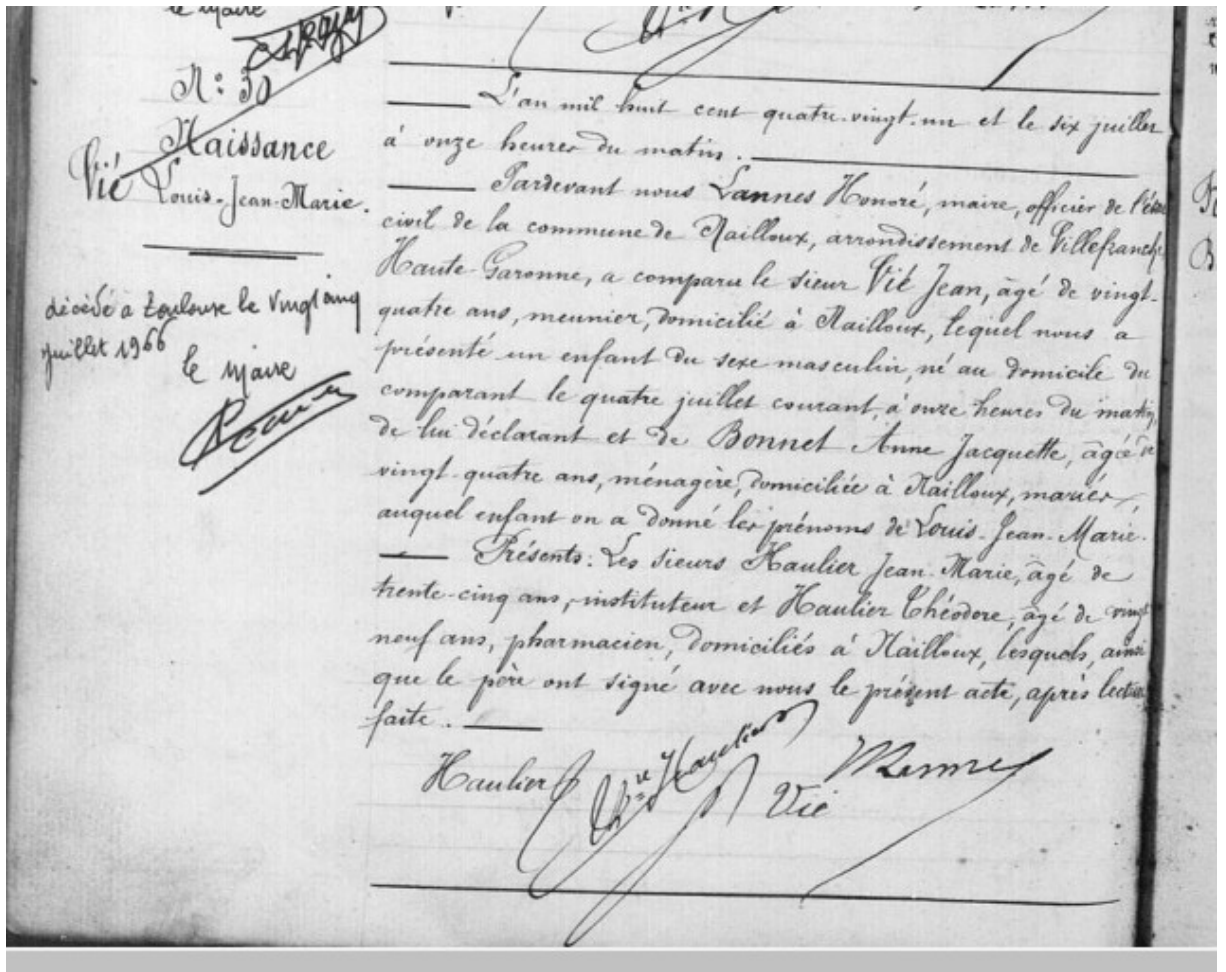 le maire
N° 30
Naissance
Vié
Louis-Jean-Marie.
décédé a Toulouse le vingt cinq
juillet 1966
le maire
L'an mil huit cent quatre-vingt-un et le six juillet
à onze heures du matin.
Pardevant nous Lannes Honoré, maire, officier de l'état
civil de la commune de Nailloux, arrondissement de Villefranche
Haute-Garonne, a comparu le sieur Vié Jean, âgé de vingt-
quatre ans, meunier, domicilié à Nailloux, lequel nous a
présenté un enfant du sexe masculin, né au domicile du
comparant le quatre juillet courant, à onze heures du matin,
de lui déclarant et de Bonnet Anne Jacquette, âgée de
vingt-quatre ans, ménagère, domiciliée à Nailloux, mariés,
auquel enfant on a donné les prénoms de Louis-Jean-Marie.
Présents: Les sieurs Haulier Jean-Marie, âgé de
trente-cinq ans, instituteur et Haulier Théodore, âgé de vingt
neuf ans, pharmacien, domiciliés à Nailloux, lesquels, ainsi
que le père ont signé avec nous le présent acte, après lecture
faite.
Haulier
Haulier
Vié